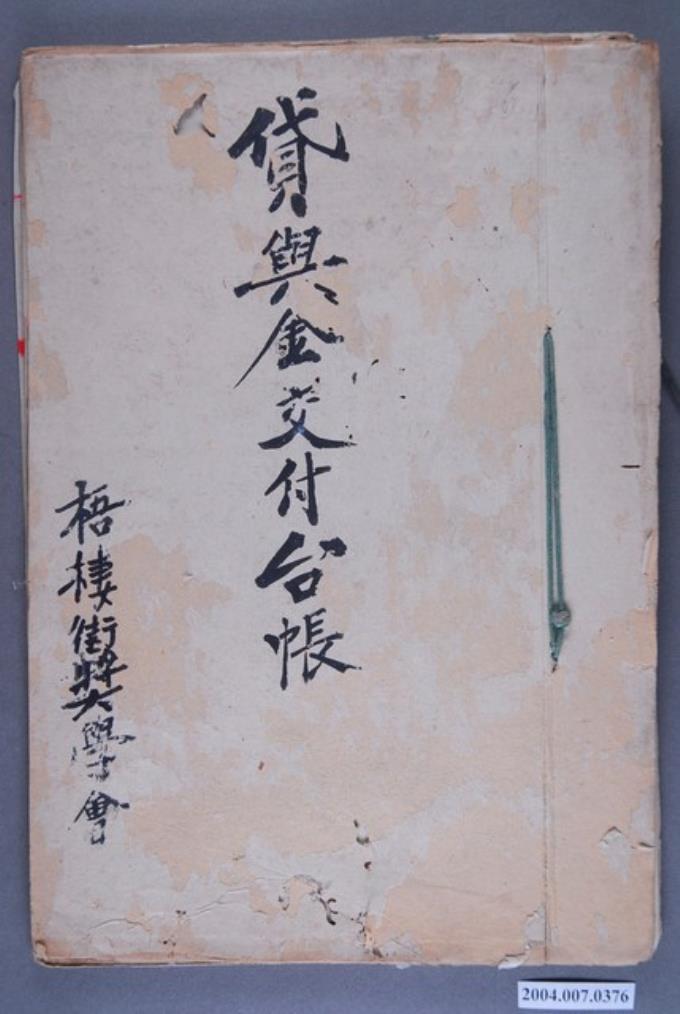 貸與金交付台帳
梧棲街奬學會
2004.007.0376